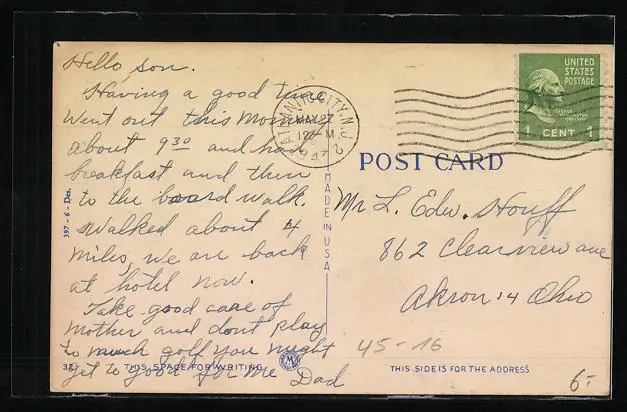 Hello son.
Having a good time
Went out this Morning
about 9 30 and had
breakfast and then
to the board walk.
walked about 4
miles, we are back
at hotel now.
Take good care of
Mother and dont play
to much golf you might
get to good for me Dad
THIS SPACE FOR WRITING
397-6-Des.
MADE IN U.S.A.
ATLANTIC CITY, N.J. 2
MAY 27
12 - M
1947
UNITED
STATES
POSTAGE
1 CENT 1
POST CARD
Mr L. Edw. Houff
862 Clearview ave
Akron 14 Ohio
45-16
THIS SIDE IS FOR THE ADDRESS
6.-